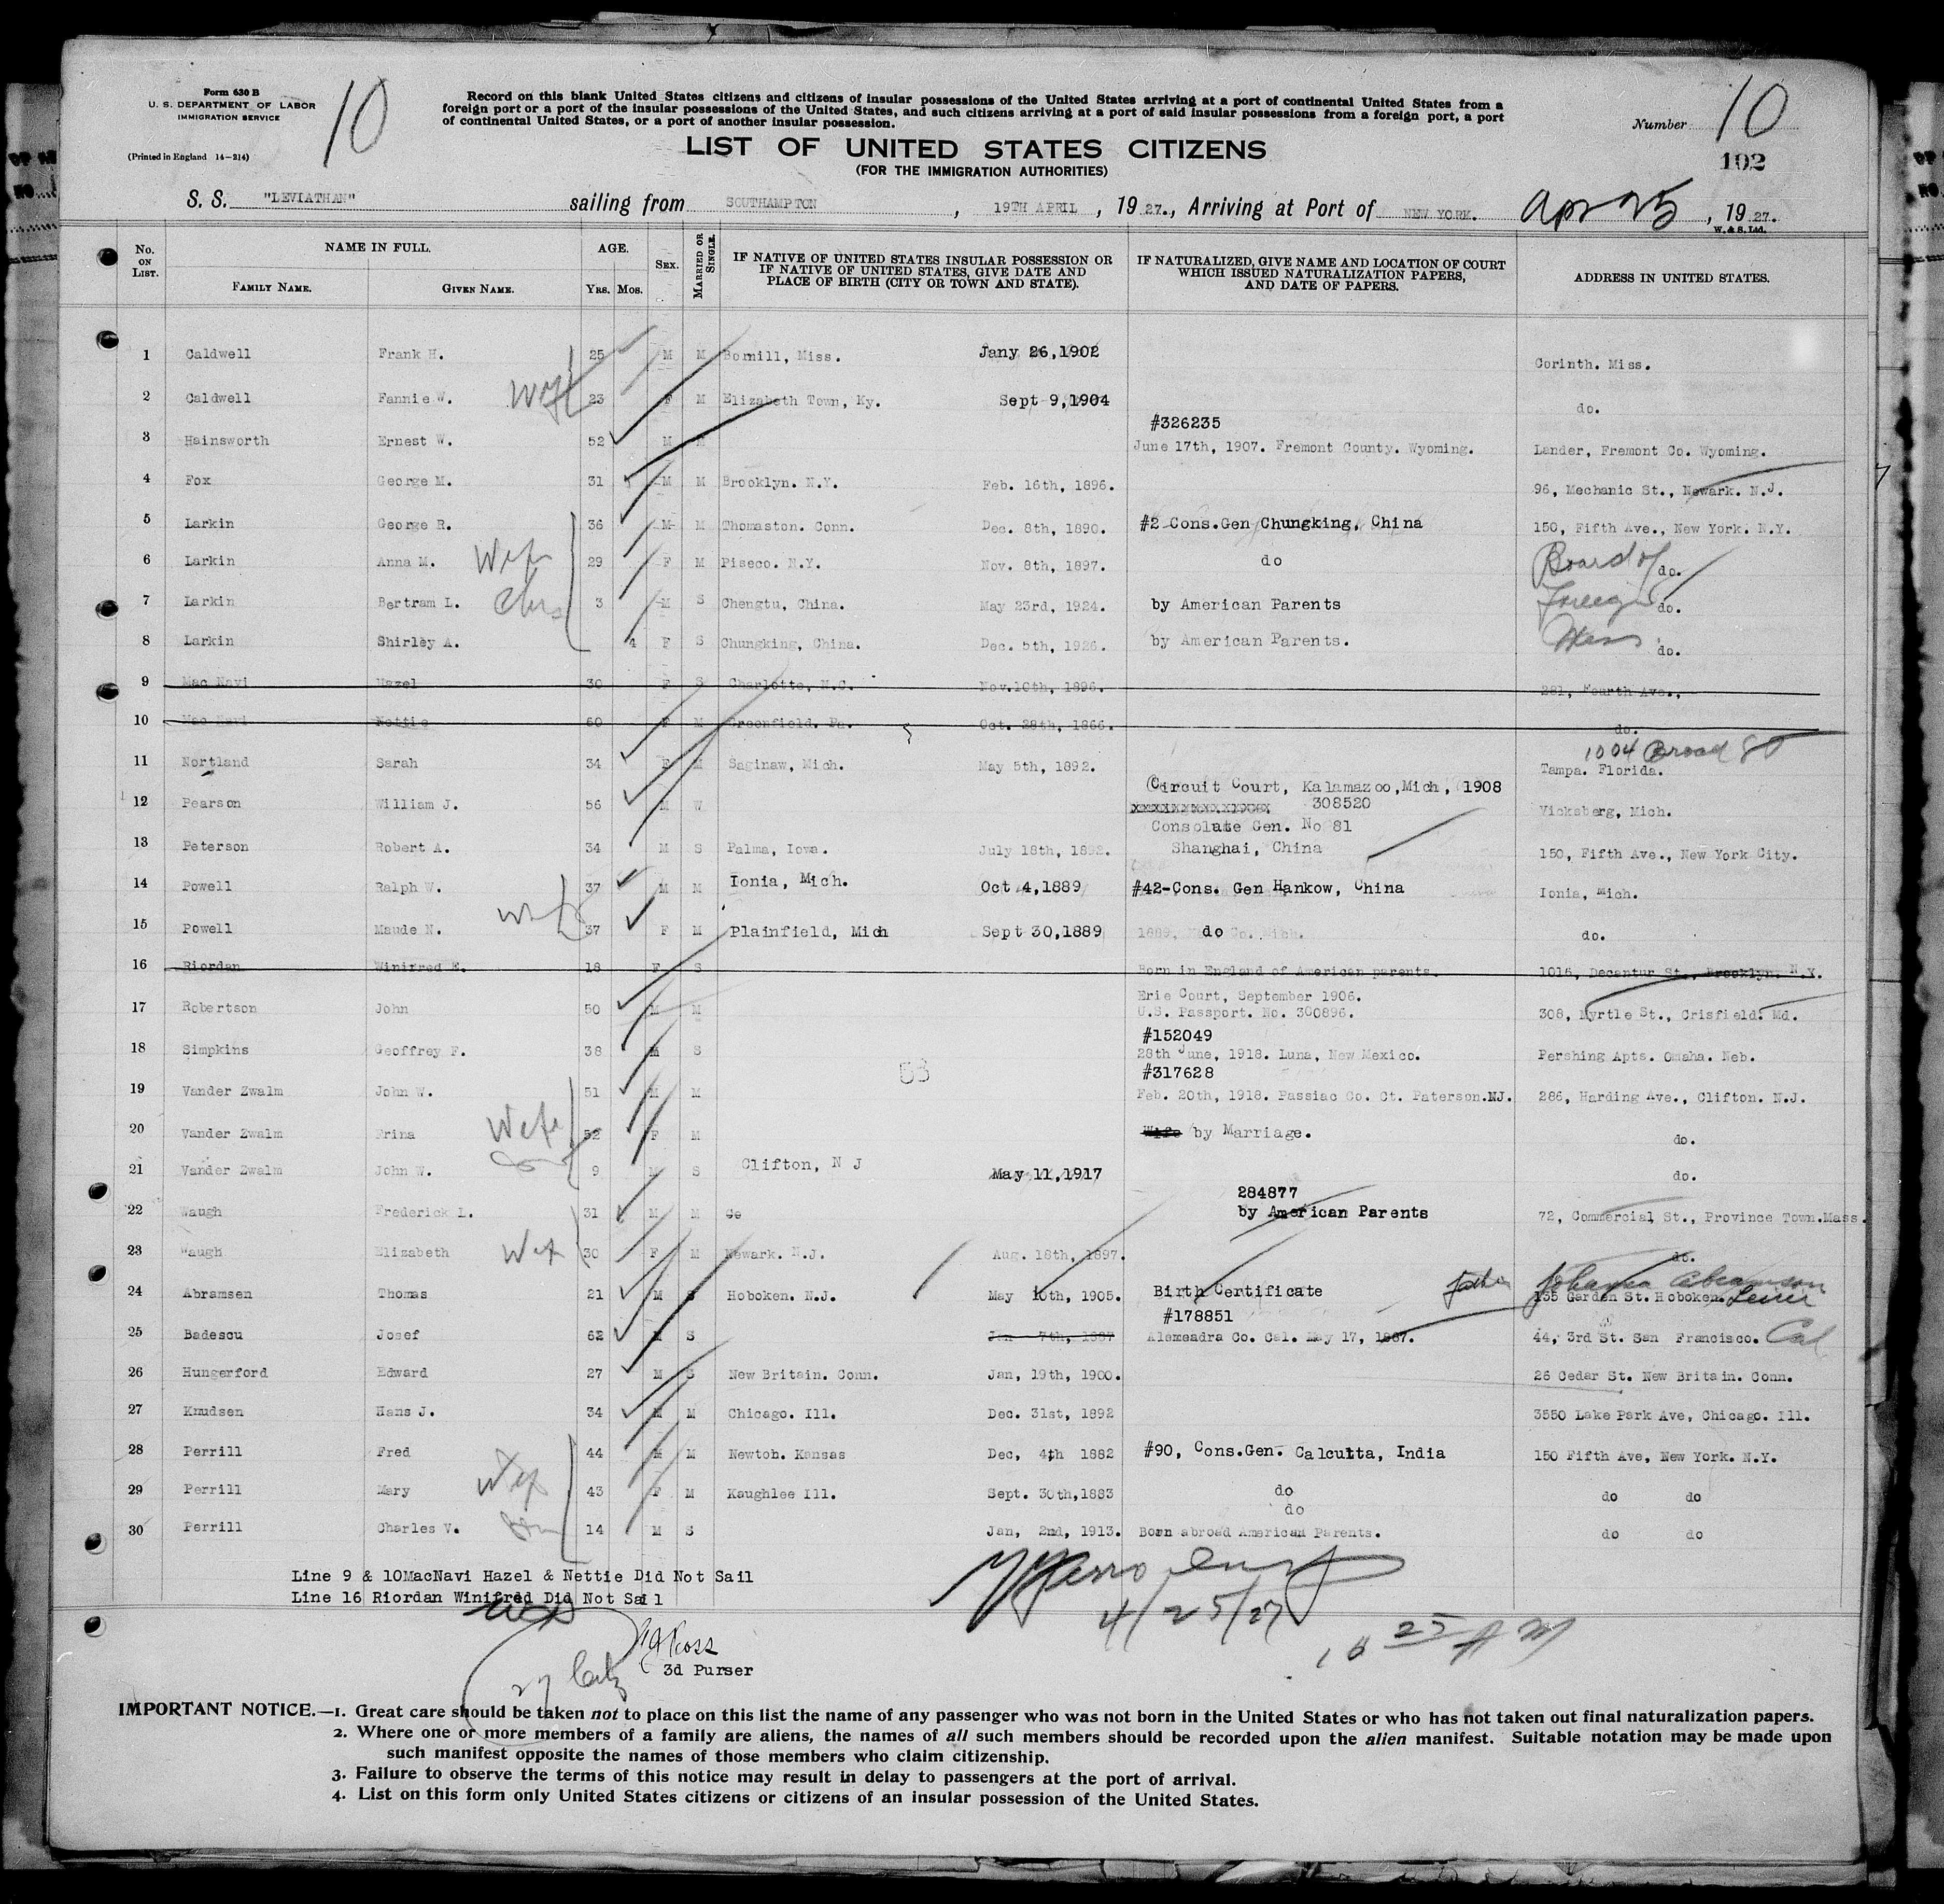 Form 630 B
U. S. DEPARTMENT OF LABOR
IMMIGRATION SERVICE
(Printed in England 14-214)
10
Record on this blank United States citizens and citizens of insular possessions of the United States arriving at a port of continental United States from a
foreign port or a port of the insular possessions of the United States, and such citizens arriving at a port of said insular possessions from a foreign port, a port
of continental United States, or a port of another insular possession.
Number 10
102
LIST OF UNITED STATES CITIZENS
(FOR THE IMMIGRATION AUTHORITIES)
S. S. "LEVIATHAN" sailing from SOUTHAMPTON, 19TH APRIL, 1927., Arriving at Port of NEW YORK. Apr 25, 1927.
W. & S. Ltd.
No. ON LIST. NAME IN FULL. FAMILY NAME. GIVEN NAME. AGE. YRS. MOS. SEX. MARRIED OR SINGLE. IF NATIVE OF UNITED STATES INSULAR POSSESSION OR IF NATIVE OF UNITED STATES, GIVE DATE AND PLACE OF BIRTH (CITY OR TOWN AND STATE). IF NATURALIZED, GIVE NAME AND LOCATION OF COURT WHICH ISSUED NATURALIZATION PAPERS, AND DATE OF PAPERS. ADDRESS IN UNITED STATES.
1 Caldwell Frank H. 25 M M Bomill, Miss. Jany 26,1902 Corinth. Miss.
2 Caldwell Fannie W. Wife 23 F M Elizabeth Town, Ky. Sept 9,1904 do.
#326235
3 Hainsworth Ernest W. 52 M M June 17th, 1907. Fremont County. Wyoming. Lander, Fremont Co. Wyoming.
4 Fox George M. 31 M M Brooklyn. N.Y. Feb. 16th, 1896. 96, Mechanic St., Newark. N.J.
5 Larkin George R. 36 M M Thomaston. Conn. Dec. 8th, 1890. #2 Cons.Gen Chungking, China 150, Fifth Ave., New York. N.Y.
6 Larkin Anna M. Wife 29 F M Piseco. N.Y. Nov. 8th, 1897. do Board of do.
7 Larkin Bertram L. 3 M S Chengtu, China. May 23rd, 1924. by American Parents Foreign do.
8 Larkin Shirley A. 4 F S Chungking, China. Dec. 5th, 1926. by American Parents. do.
9 Mac Navi Hazel 30 F S Charlotte, N.C. Nov.10th, 1896. 281, Fourth Ave.,
10 Mac Navi Nettie 60 F M Greenfield. Pa. Oct. 28th, 1866. do.
1004 Broad St
11 Nortland Sarah 34 F M Saginaw, Mich. May 5th, 1892. Tampa. Florida.
Circuit Court, Kalamazoo,Mich, 1908
12 Pearson William J. 56 M W 308520 Vicksberg, Mich.
Consolate Gen. No 81
13 Peterson Robert A. 34 M S Palma, Iowa. July 18th, 1892. Shanghai, China 150, Fifth Ave., New York City.
14 Powell Ralph W. 37 M M Ionia, Mich. Oct 4,1889 #42-Cons. Gen Hankow, China Ionia, Mich.
15 Powell Maude N. Wife 37 F M Plainfield, Mich Sept 30,1889 do do.
16 Riordan Winifred E. 18 F S Born in England of American parents. 1015, Decantur St., Brooklyn. N.Y.
Erie Court, September 1906.
17 Robertson John 50 M M U.S. Passport. No. 300896. 308, Myrtle St., Crisfield. Md.
#152049
18 Simpkins Geoffrey F. 38 M S 28th June, 1918. Luna, New Mexico. Pershing Apts. Omaha. Neb.
53
#317628
19 Vander Zwalm John W. 51 M M Feb. 20th, 1918. Passiac Co. Ct. Paterson.NJ. 286, Harding Ave., Clifton. N.J.
20 Vander Zwalm Frina Wife 52 F M Wife by Marriage. do.
21 Vander Zwalm John W. Son 9 M S Clifton, N J May 11,1917 do.
284877
22 Waugh Frederick L. 31 M M by American Parents 72, Commercial St., Province Town.Mass.
23 Waugh Elizabeth Wife 30 F M Newark. N.J. Aug. 18th, 1897. do.
24 Abramsen Thomas 21 M S Hoboken. N.J. May 10th, 1905. Birth Certificate father Johanna Abramson
155 Garden St. Hoboken.
#178851
25 Badescu Josef 62 M S Jan 7th, 1897 Alemeadra Co. Cal. May 17, 1887. 44, 3rd St. San Francisco. Cal
26 Hungerford Edward 27 M S New Britain. Conn. Jan, 19th, 1900. 26 Cedar St. New Britain. Conn.
27 Knudsen Hans J. 34 M M Chicago. Ill. Dec. 31st, 1892 3550 Lake Park Ave, Chicago. Ill.
28 Perrill Fred 44 M M Newtoh. Kansas Dec, 4th 1882 #90, Cons.Gen. Calcutta, India 150 Fifth Ave, New York. N.Y.
29 Perrill Mary Wife 43 F M Kaughlee Ill. Sept. 30th,1883 do do do
do
30 Perrill Charles V. Son 14 M S Jan, 2nd, 1913. Born abroad American Parents. do do
Line 9 & 10MacNavi Hazel & Nettie Did Not Sail
Line 16 Riordan Winifred Did Not Sail
4/25/27
10 25 AM
Ross
3d Purser
27
IMPORTANT NOTICE.—1. Great care should be taken not to place on this list the name of any passenger who was not born in the United States or who has not taken out final naturalization papers.
2. Where one or more members of a family are aliens, the names of all such members should be recorded upon the alien manifest. Suitable notation may be made upon
such manifest opposite the names of those members who claim citizenship.
3. Failure to observe the terms of this notice may result in delay to passengers at the port of arrival.
4. List on this form only United States citizens or citizens of an insular possession of the United States.